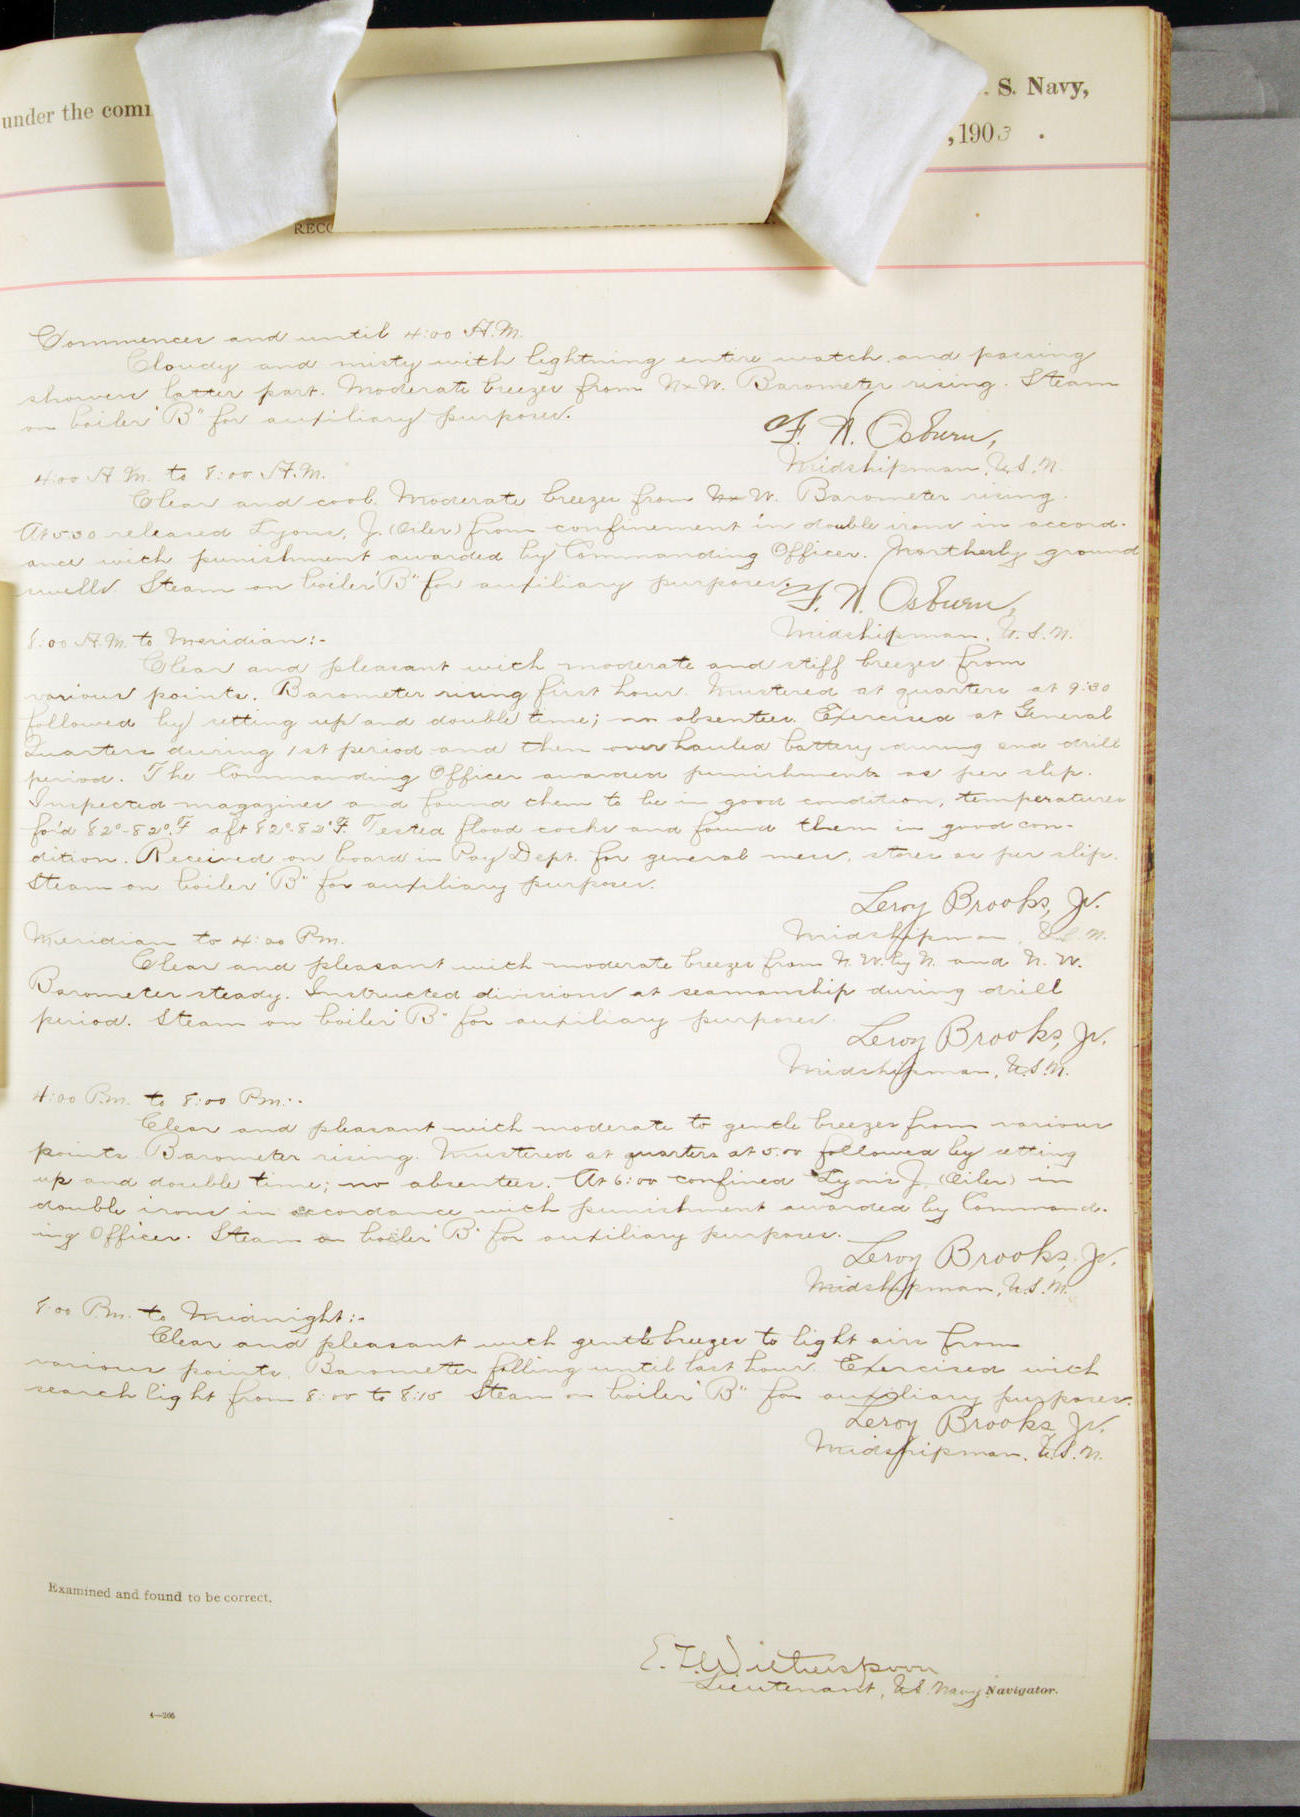 under the comm
. S. Navy,
, 1903 .
RECO
Commences and until 4:00 A.M.
Cloudy and misty with lightning entire watch and passing
showers latter part. Moderate breezes from NxW. Barometer rising. Steam
on boiler "B" for auxiliary purposes.
F. A. Osburn,
Midshipman, U.S.N.
4:00 A.M. to 8:00 A.M.
Clear and cool. Moderate breezes from NxW. Barometer rising.
At 5:30 released Lyons, J. (Oiler) from confinement in double irons in accord-
ance with punishment awarded by Commanding Officer. Northerly ground
swells. Steam on boiler "B" for auxiliary purposes.
F. A. Osburn,
Midshipman, U.S.N.
8:00 A.M. to Meridian:-
Clear and pleasant with moderate and stiff breezes from
various points. Barometer rising first hour. Mustered at quarters at 9:30
followed by setting up and double time; no absentees. Exercised at General
Quarters during 1st period and then overhauled battery during 2nd drill
period. The Commanding Officer awarded punishments as per slip.
Inspected magazines and found them to be in good condition, temperatures
for'd 82°-82°F aft 82°-82°F. Tested flood cocks and found them in good con-
dition. Received on board in Pay Dept. for general mess, stores as per slip.
Steam on boiler "B" for auxiliary purposes.
Leroy Brooks, Jr.
Midshipman, U.S.N.
Meridian to 4:00 P.M.
Clear and pleasant with moderate breezes from N.W. by N. and N.W.
Barometer steady. Instructed divisions at seamanship during drill
period. Steam on boiler "B" for auxiliary purposes.
Leroy Brooks, Jr.
Midshipman, U.S.N.
4:00 P.M. to 8:00 P.M.:-
Clear and pleasant with moderate to gentle breezes from various
points. Barometer rising. Mustered at quarters at 5:00 followed by setting
up and double time; no absentees. At 6:00 confined Lyons J. (Oiler) in
double irons in accordance with punishment awarded by Command-
ing Officer. Steam on boiler "B" for auxiliary purposes.
Leroy Brooks, Jr.
Midshipman, U.S.N.
8:00 P.M. to Midnight:-
Clear and pleasant with gentle breezes to light airs from
various points. Barometer falling until last hour. Exercised with
search light from 8:00 to 8:15 Steam on boiler "B" for auxiliary purposes.
Leroy Brooks, Jr.
Midshipman, U.S.N.
Examined and found to be correct.
E. T. Witherspoon
Lieutenant, U.S. Navy, Navigator.